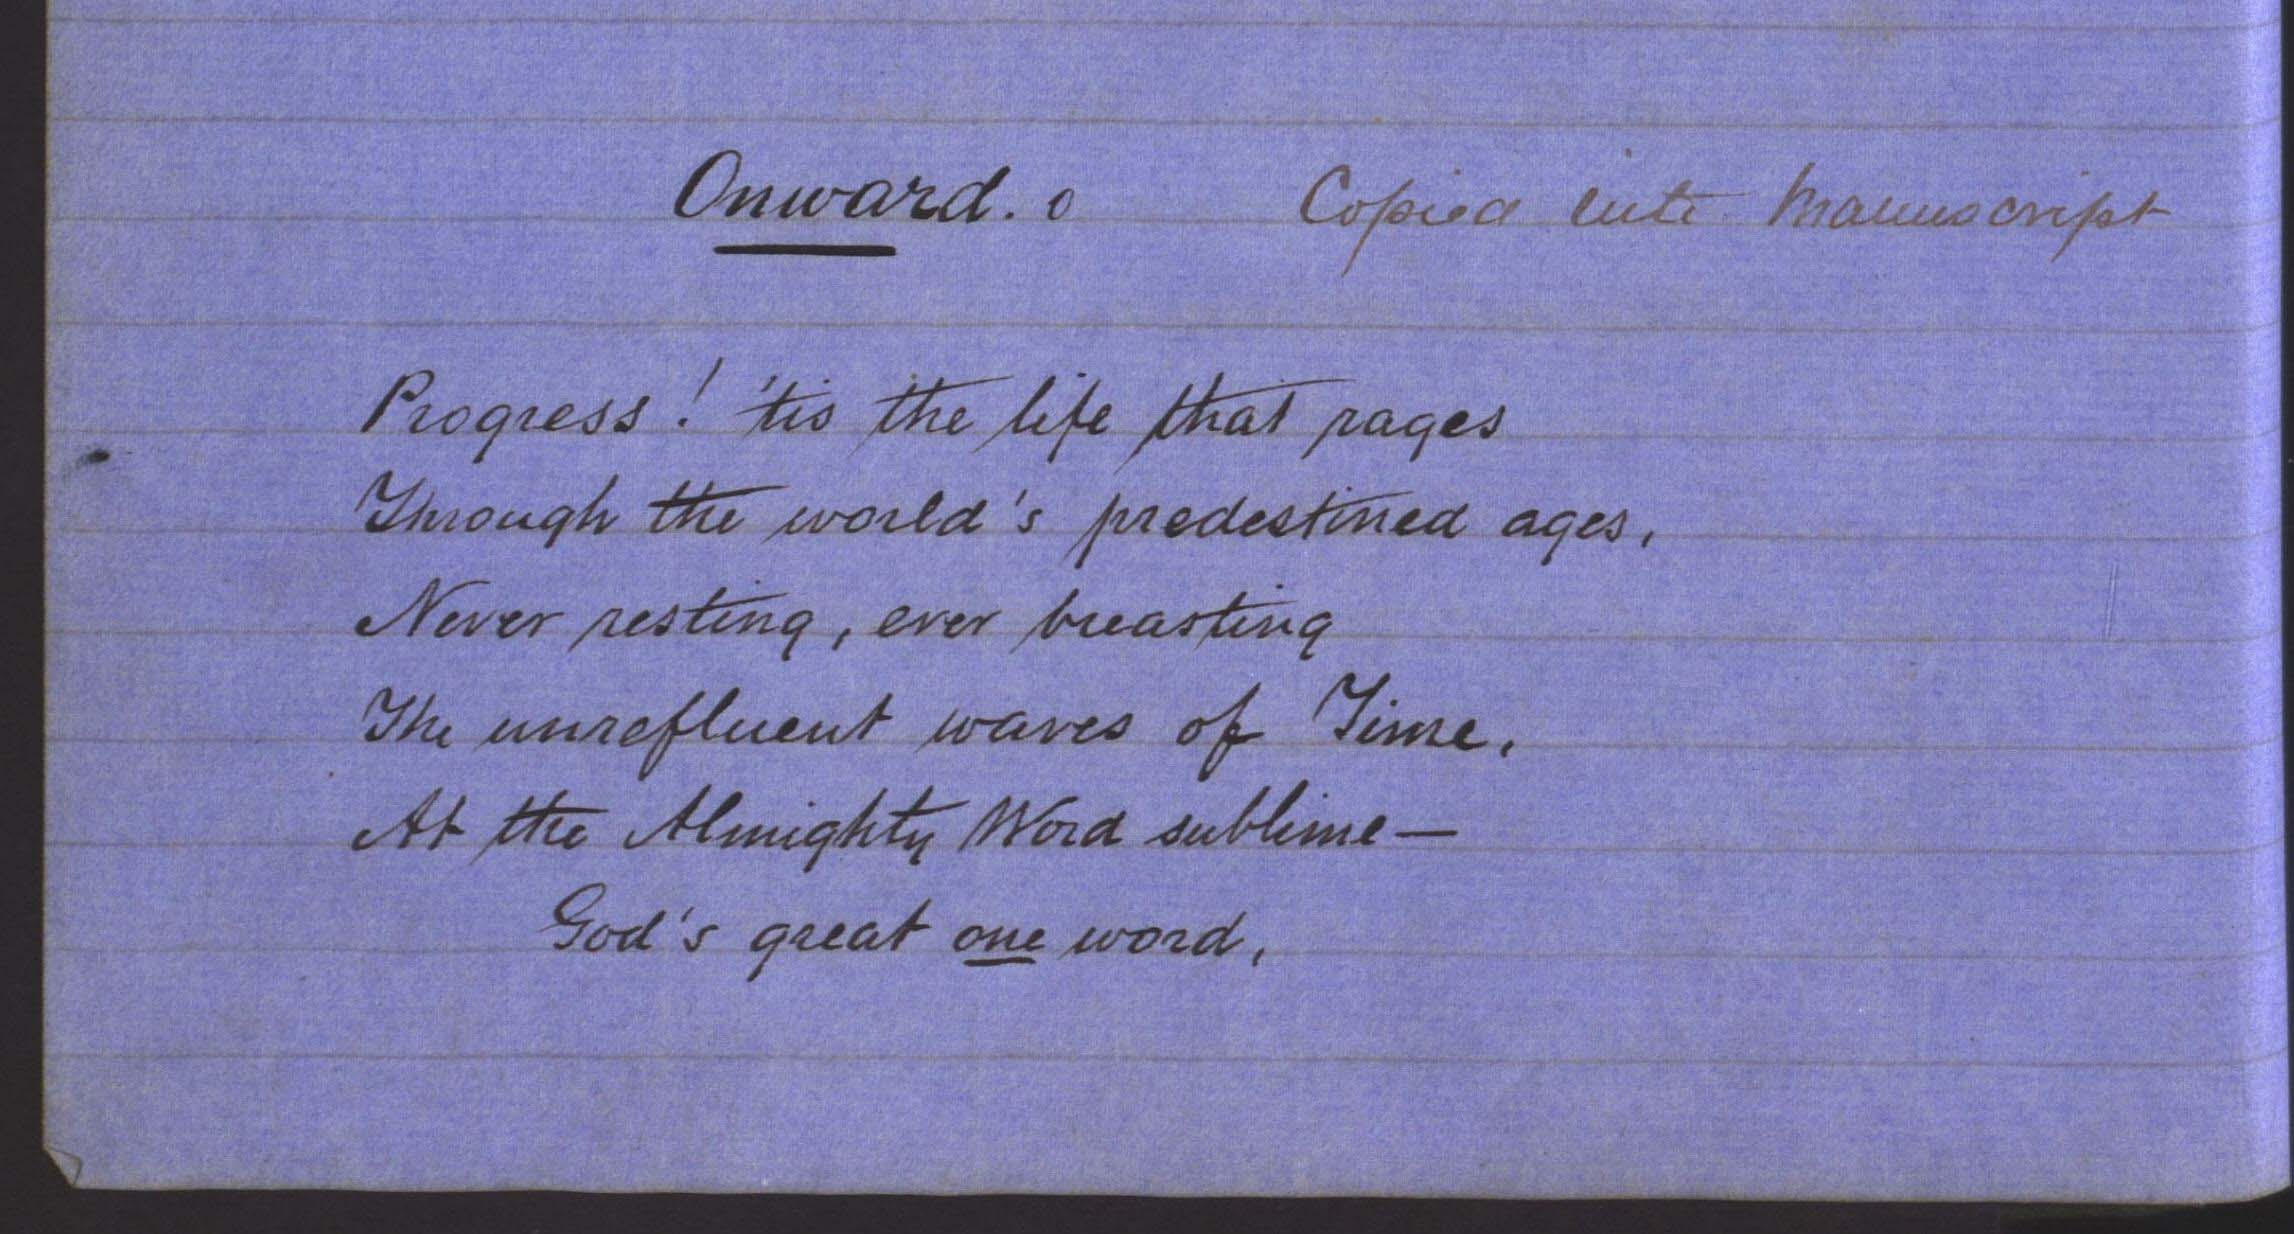 Onward. o Copied into Manuscript
Progress! 'tis the life that rages
Through the world's predestined ages,
Never resting, ever breasting
The unrefluent waves of Time,
At the Almighty Word sublime—
God's great one word,